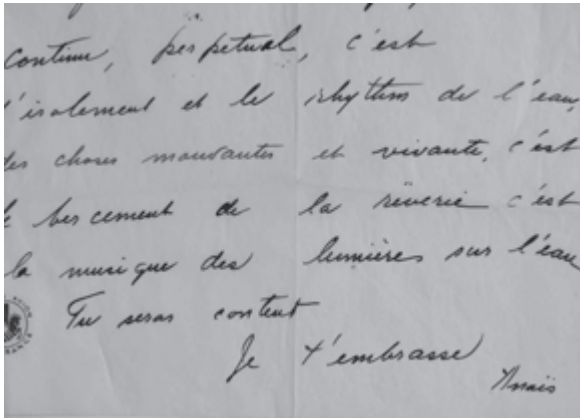 continu, perpetual, c'est
l'isolement et le rhythm de l'eau,
des choses mouvantes et vivante, c'est
le bercement de la rêverie c'est
la musique des lumières sur l'eau
Tu seras content
Je t'embrasse
Anaïs